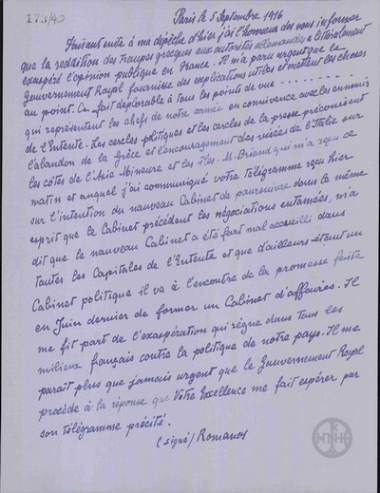 173/40
Paris le 5 Septembre 1916
Faisant suite à ma dépêche d'hier j'ai l'honneur de vous informer
que la reddition des troupes grecques aux autorités allemandes a littéralement
exaspéré l'opinion publique en France. Il m'a paru urgent que le
Gouvernement Royal fournisse des explications utiles et mettent les choses
au point. Ce fait déplorable à tous les points de vue ........
qui représentent les chefs de notre armée en connivence avec les ennemis
de l'Entente. Les cercles politiques et les cercles de la presse préconisent
l'abandon de la Grèce et l'encouragement des visées de l'Italie sur
les côtes de l'Asie Mineure et les Iles. M. Briand qui m'a reçu ce
matin et auquel j'ai communiqué votre Télégramme reçu hier
sur l'intention du nouveau Cabinet de poursuivre dans le même
esprit que le Cabinet précédent les négociations entamées, m'a
dit que le nouveau Cabinet a été fort mal accueilli dans
toutes les Capitales de l'Entente et que d'ailleurs étant un
Cabinet politique il va à l'encontre de la promesse faite
en Juin dernier de former un Cabinet d'affaires. Il
me fit part de l'exaspération qui règne dans tous les
milieux français contre la politique de notre pays. Il me
paraît plus que jamais urgent que le Gouvernement Royal
procède à la réponse que Votre Excellence me fait espérer par
son télégramme précité.
(signé) Romanos